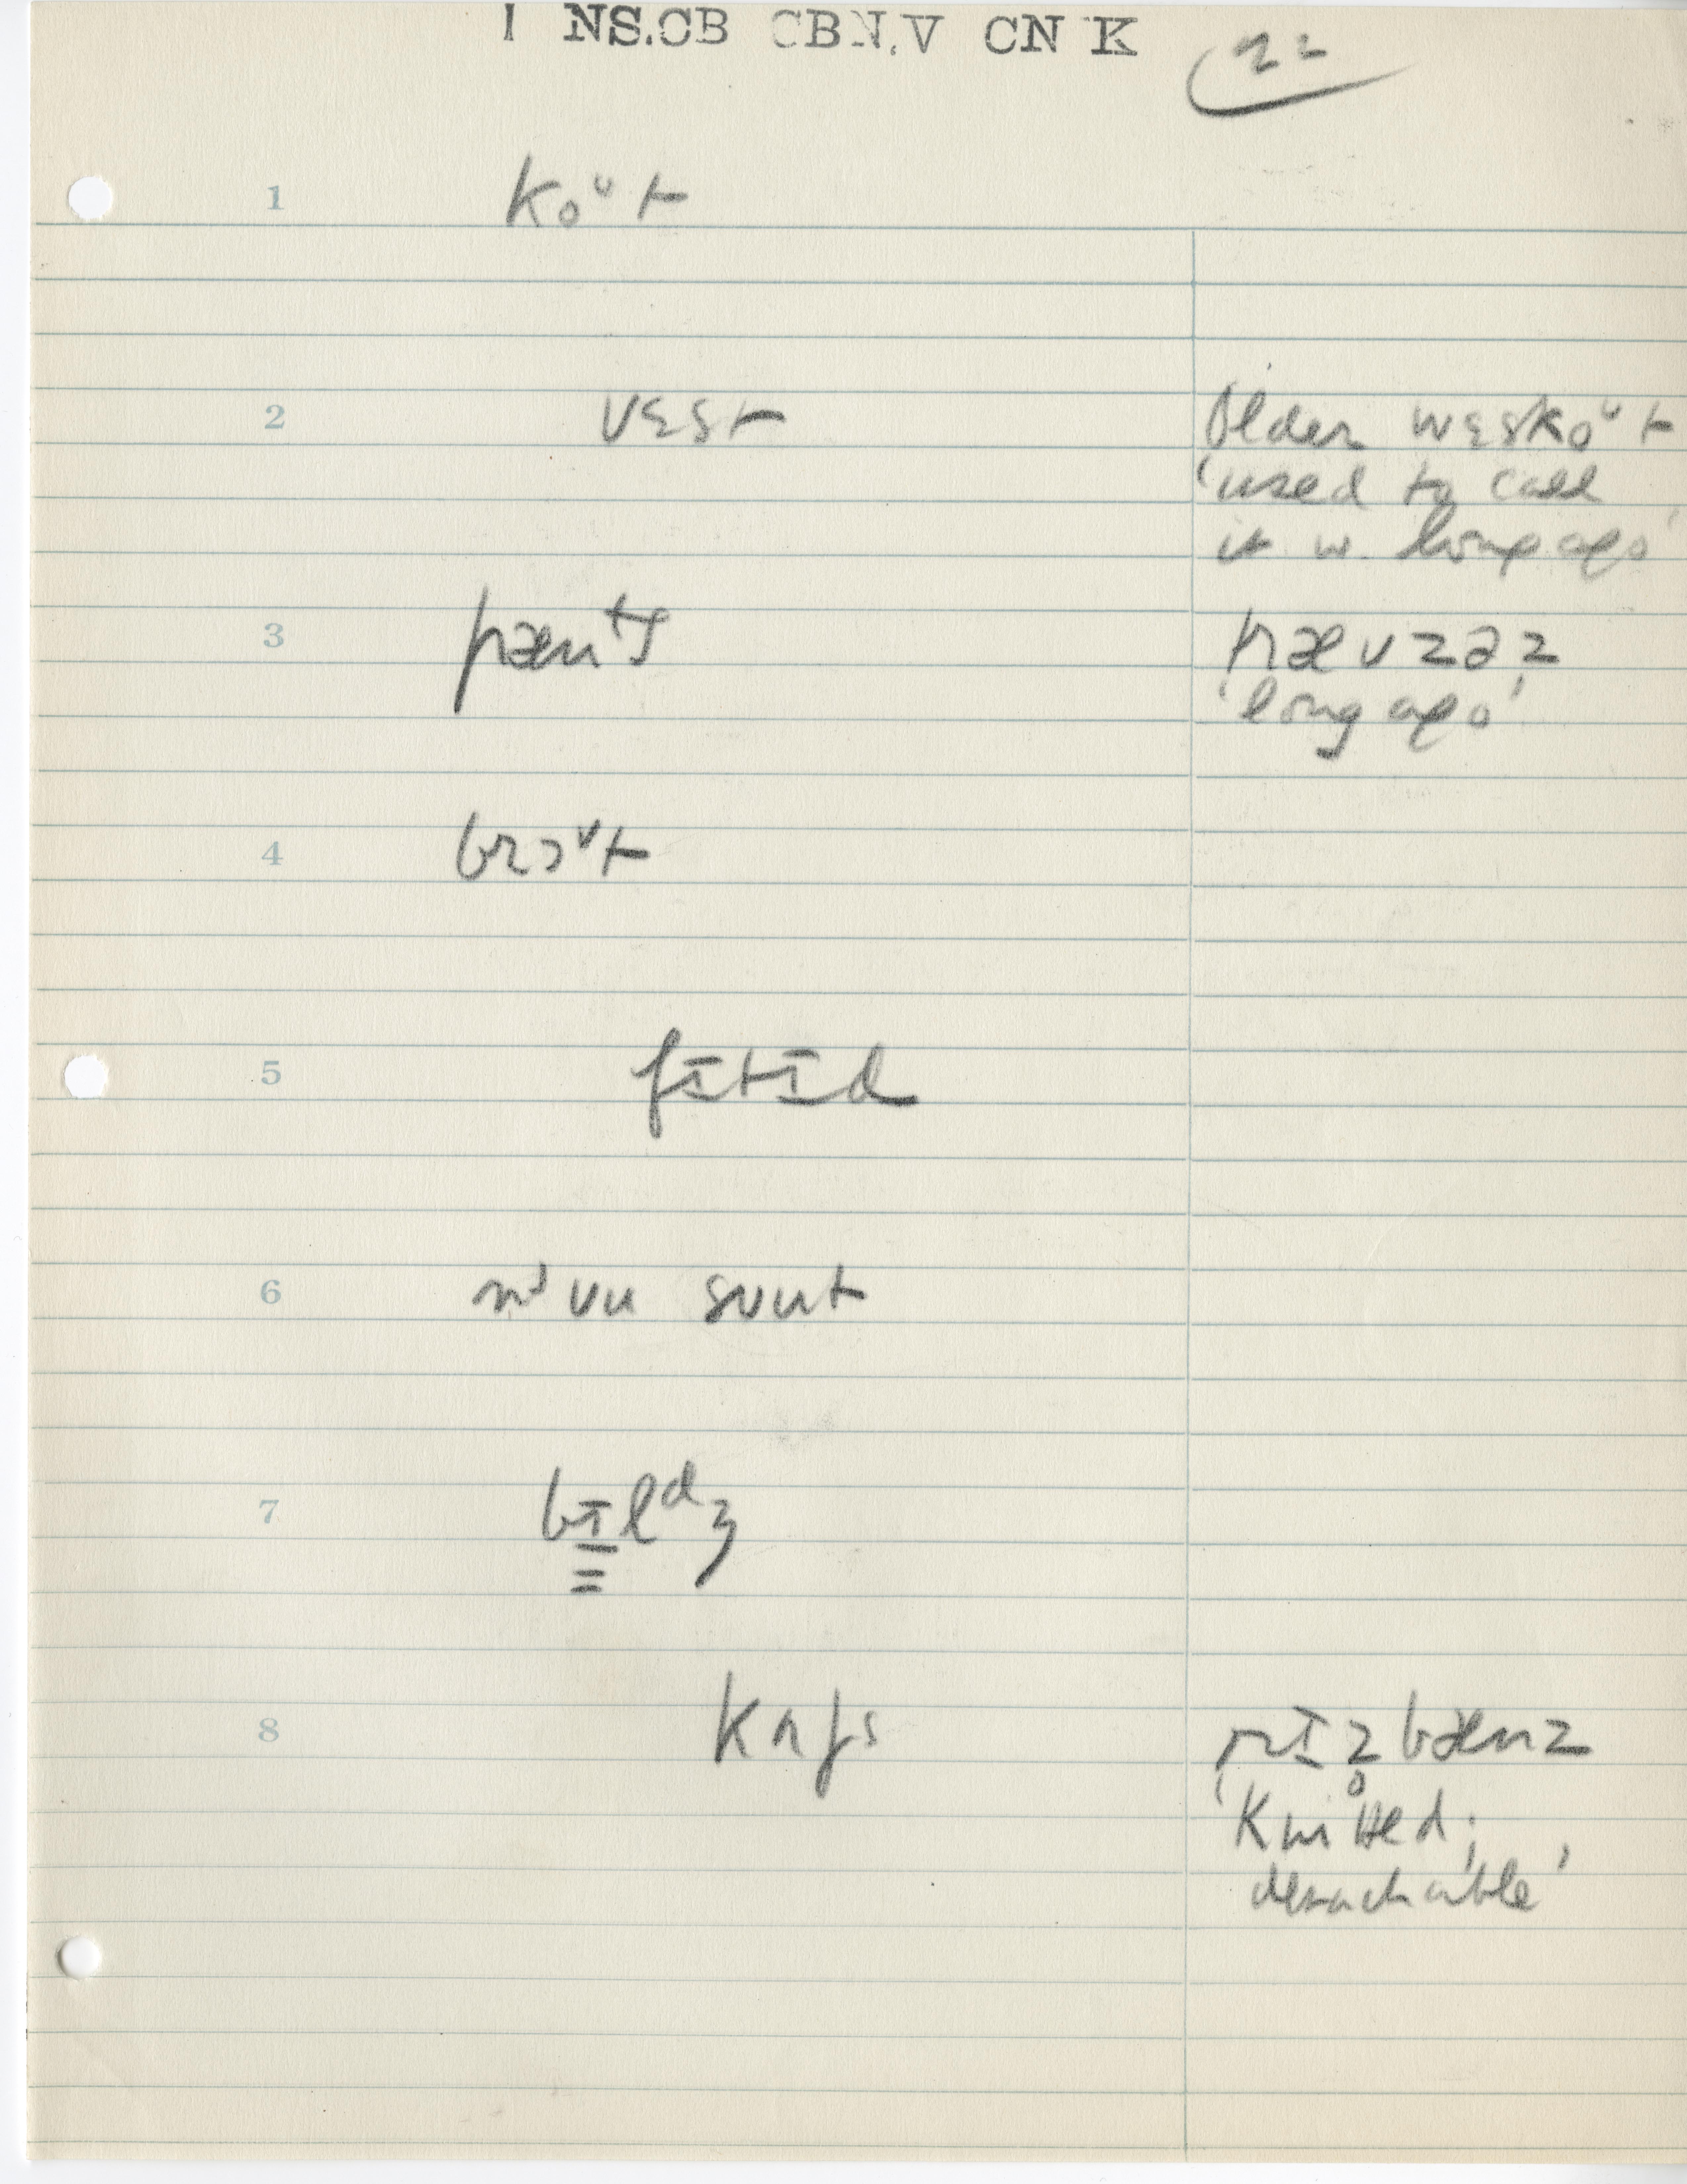 I NS.CB CBN.V CN K 22
1 koᵘt
2 vɛst Older wɛskoᵘt
'used to call
it w. long ago'
3 pænᵗs træʊzəz
'long ago'
4 brɔᵛt
5 fɪtɪd
6
7 bɪlᵈʒ
8 kʌfs rɪz̥bænz
'Knitted;
detachable'